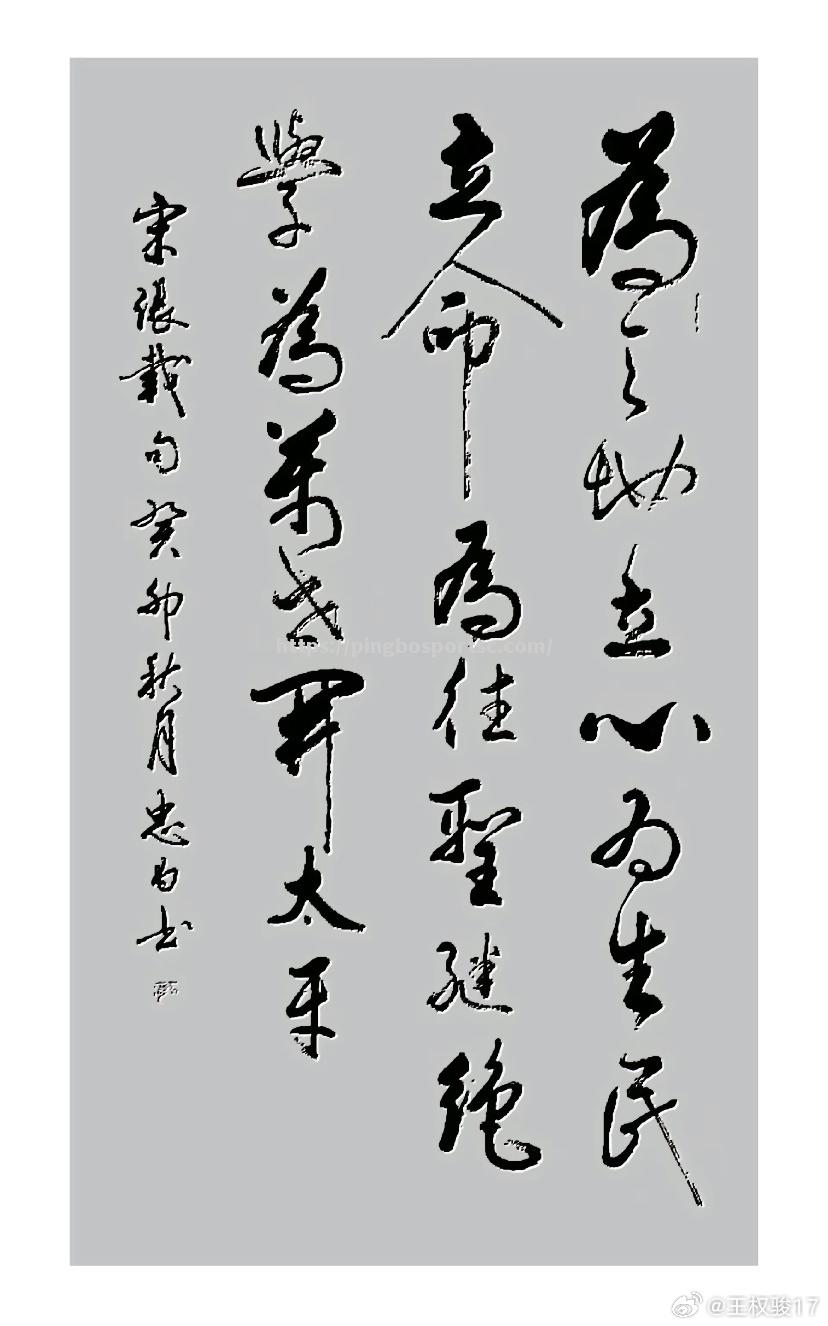 為天地立心为生民
立命為往聖继絕
學為萬世開太平
宋張載句癸卯秋月忠书
https://pingbosportsc.com/
@王权骏17